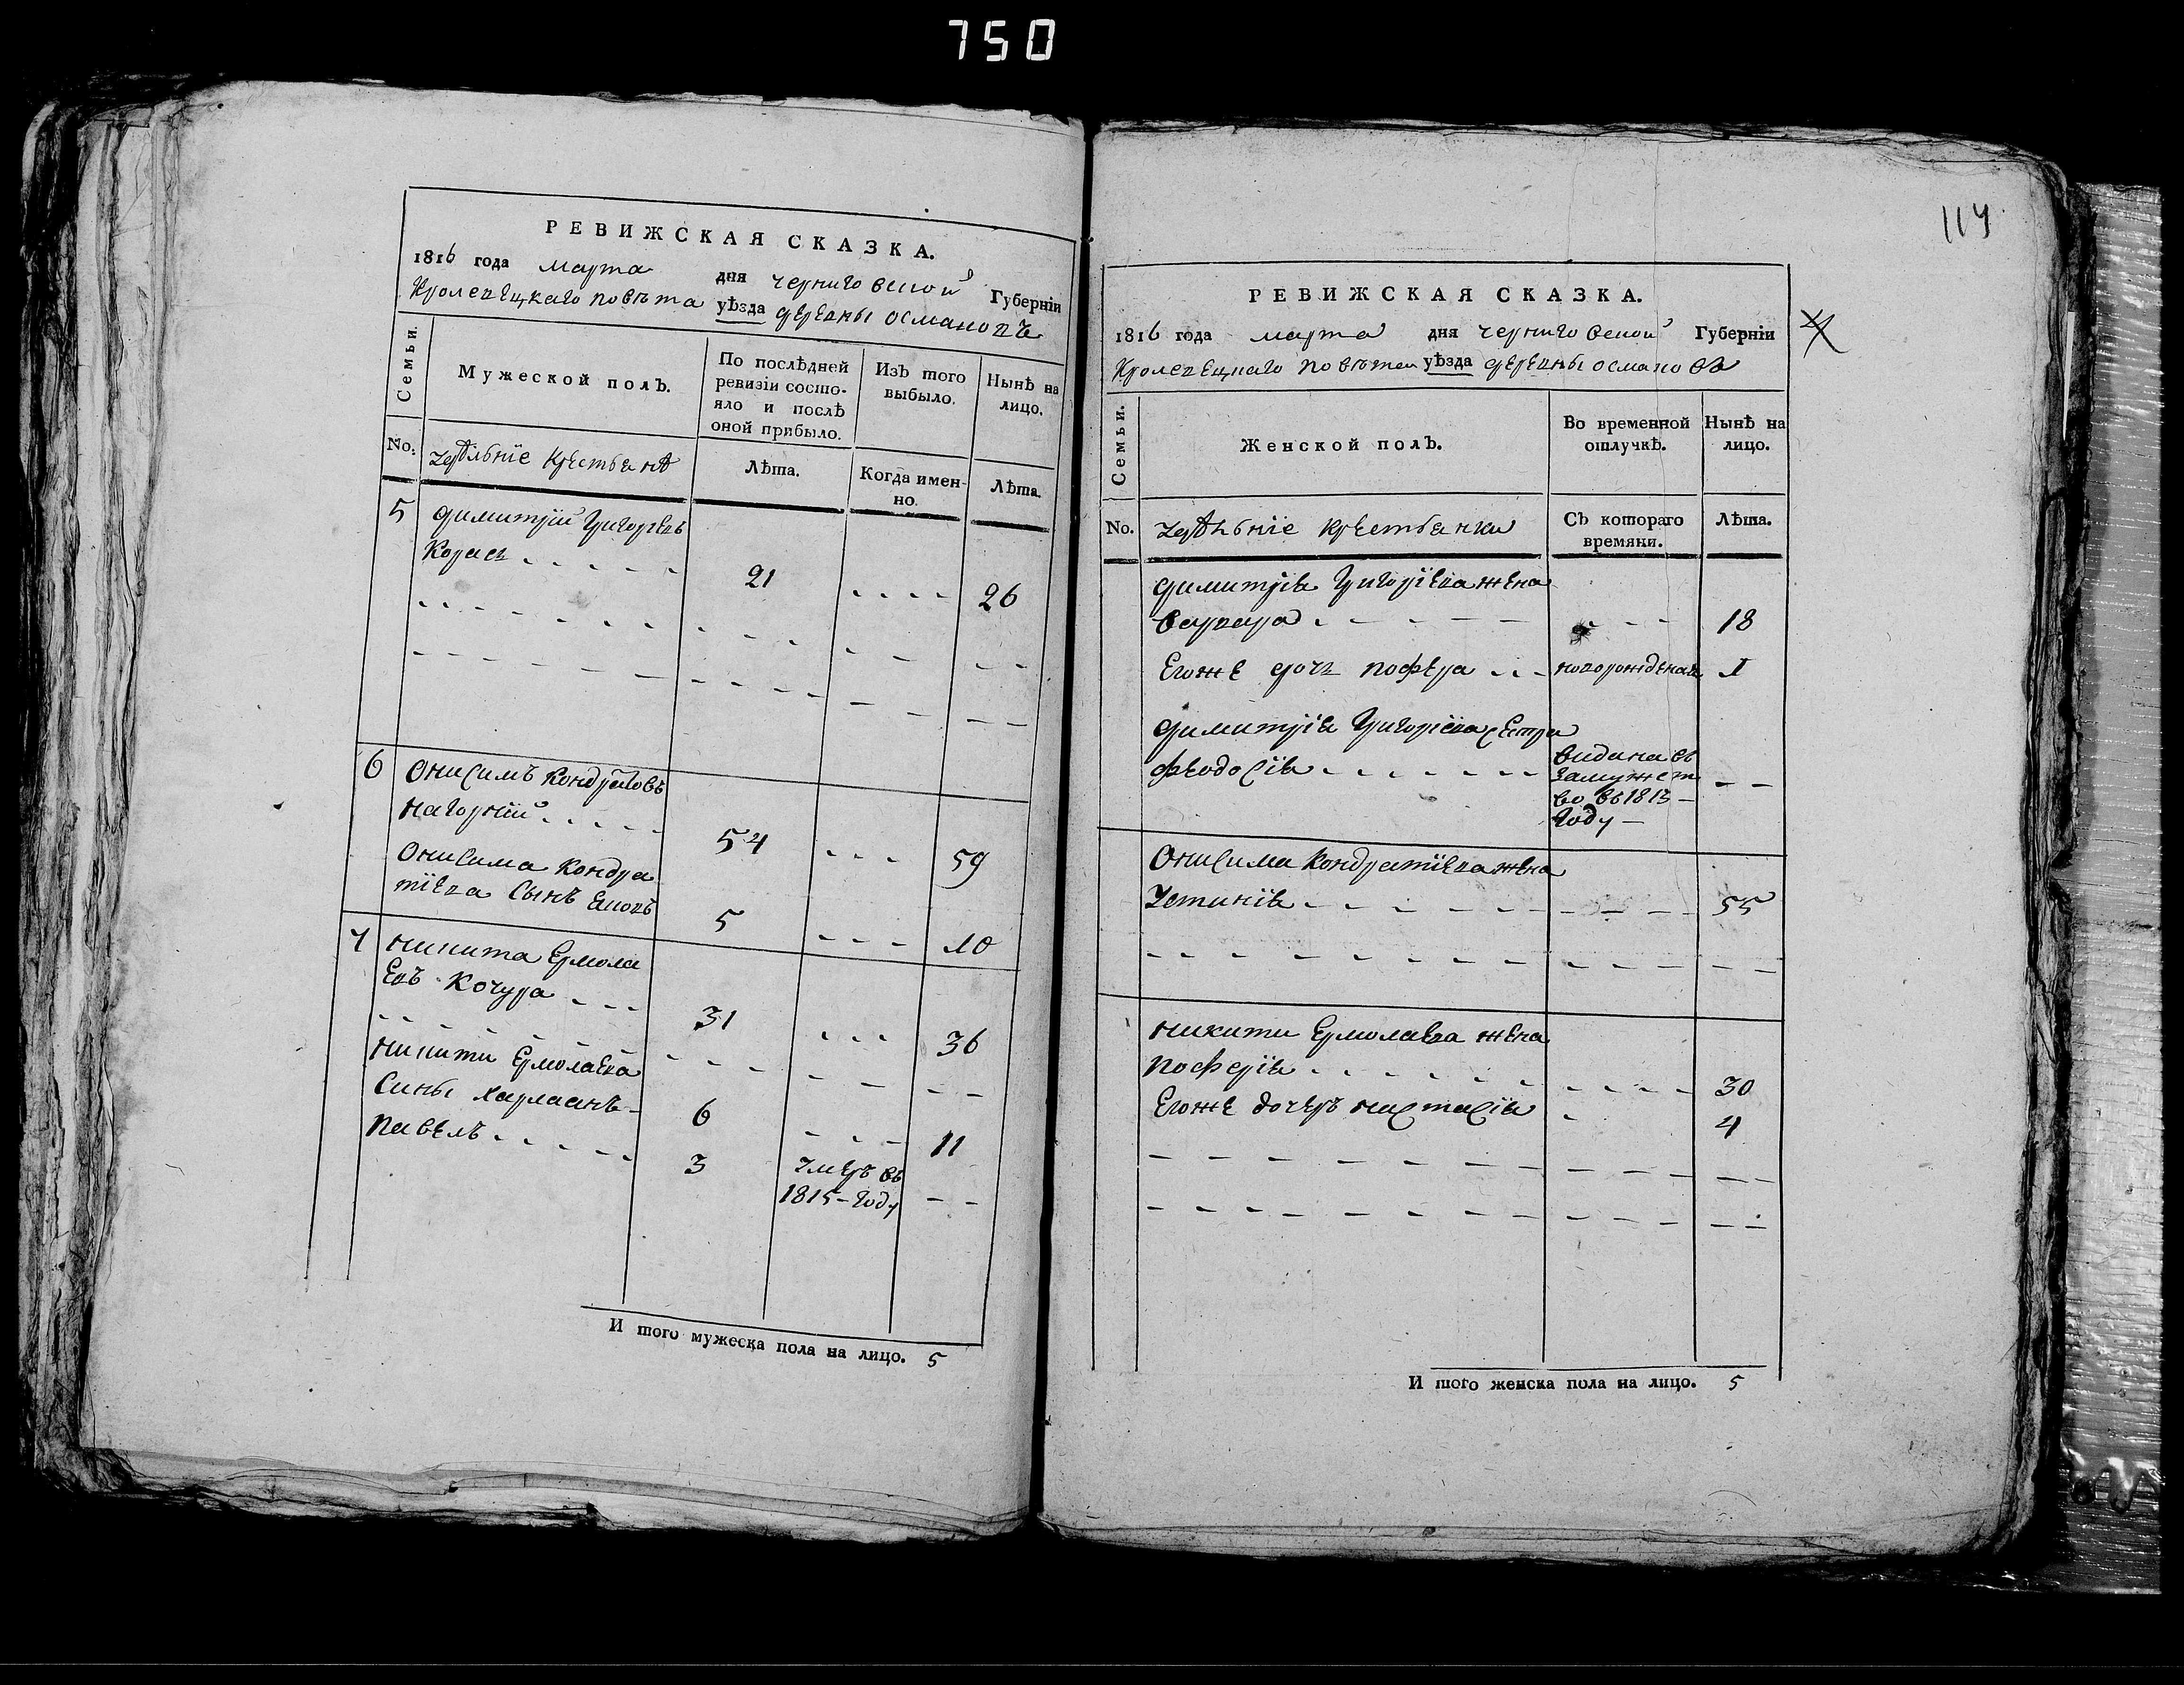 750
РЕВИЖСКАЯ СКАЗКА.
1816 года марта дня черниговской Губерніи
Кролевецкаго повѣта уѣзда деревны османовъ
Семьи.
Мужеской полъ.
По послѣдней
ревизіи состо-
яло и послѣ
оной прибыло.
Изъ того
выбыло.
Нынѣ на
лицо.
No.
здѣльніе крестьянѣ
Лѣта.
Когда имен-
но.
Лѣта.
5 димитрій григорієвъ
21 26
6 Онисимъ Кондратовъ
нагорній 54 59
Онисима Кондра
тієва Сынъ 5 10
7 никита Ермола
евъ Кочура 31 36
никити Ермолаева
Сины харлампъ 6 11
павелъ 3 умеръ въ
1815 году
И того мужеска пола на лицо. 5
114
РЕВИЖСКАЯ СКАЗКА.
1816 года марта дня черниговской Губерніи
Кролевецкаго повѣта уѣзда деревны османовъ
Семьи.
Женской полъ.
Во временной
отлучкѣ.
Нынѣ на
лицо.
No.
здѣльніе крестьянки
Съ котораго
времяни.
Лѣта.
димитрія григорієва жена
варвара 18
Егоже дочь новорожденая 1
димитрія григорієва сестра
феодосія видана въ
замужест
во въ 1813
году
Онисима Кондратієва жена
Устинія 55
никити Ермолаева жена
30
Егоже дочеръ настасія 4
И того женска пола на лицо. 5